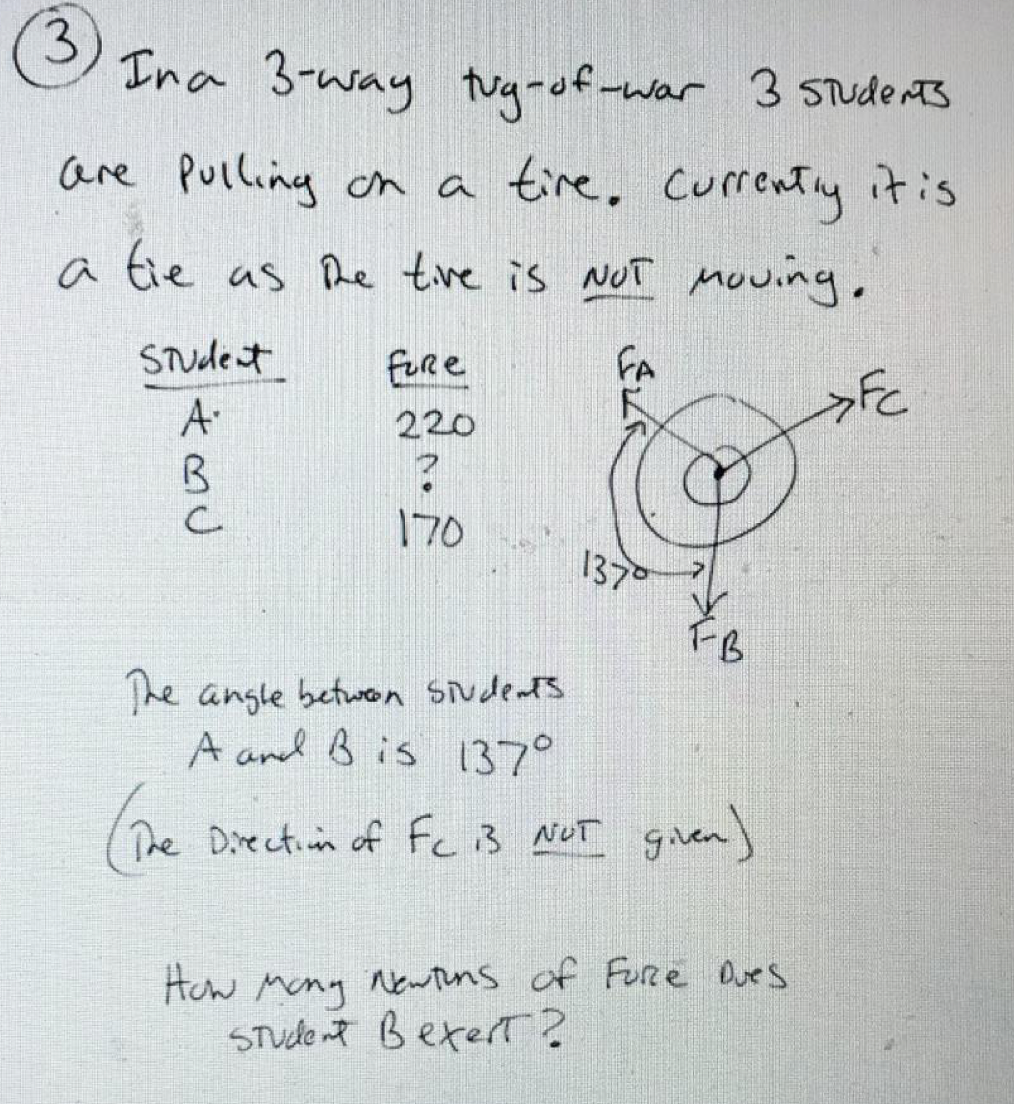 3 In a 3-way tug-of-war 3 students
are pulling on a tire. Currently it is
a tie as the tire is NOT moving.
Student Force
A 220
B ?
C 170
FA
FC
137°
FB
The angle between students
A and B is 137°
(The Direction of Fc is NOT given)
How many Newtons of Force Does
student B exert?